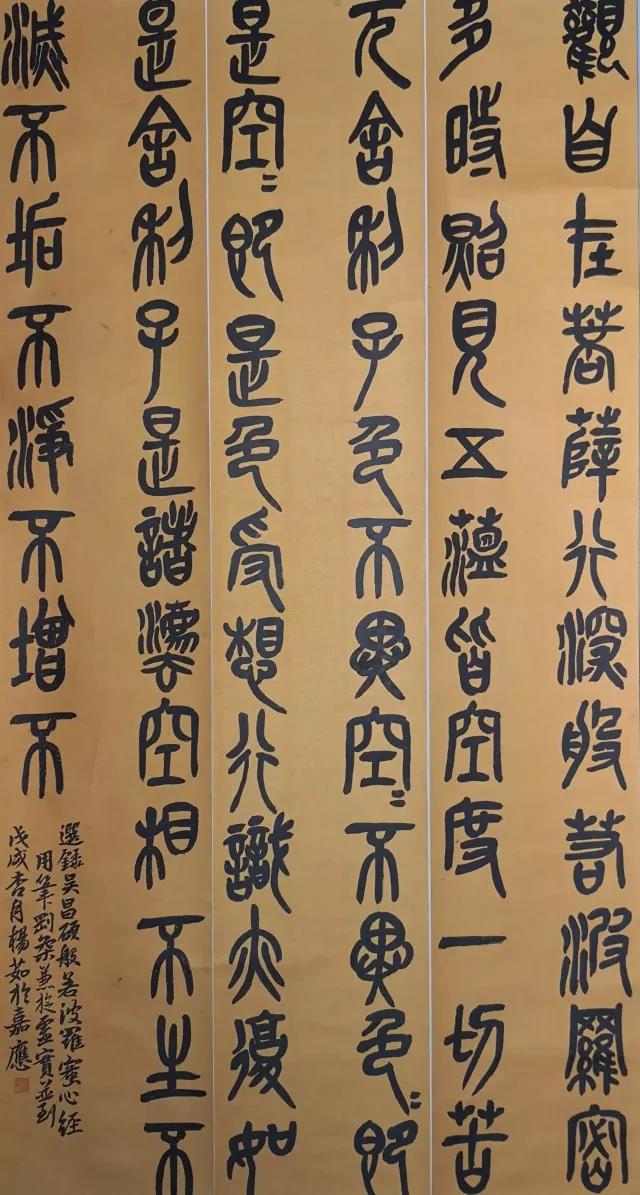 觀自在菩薩行深般若波羅密
多時照見五蘊皆空度一切苦
厄舍利子色不異空〻不異色〻即
是空〻即是色受想行識亦復如
是舍利子是諸灋空相不生不
滅不垢不淨不增不
選錄吳昌碩般若波羅蜜心經
用筆剛柔兼施虛實並到
戊戌杏月楊茹於嘉應